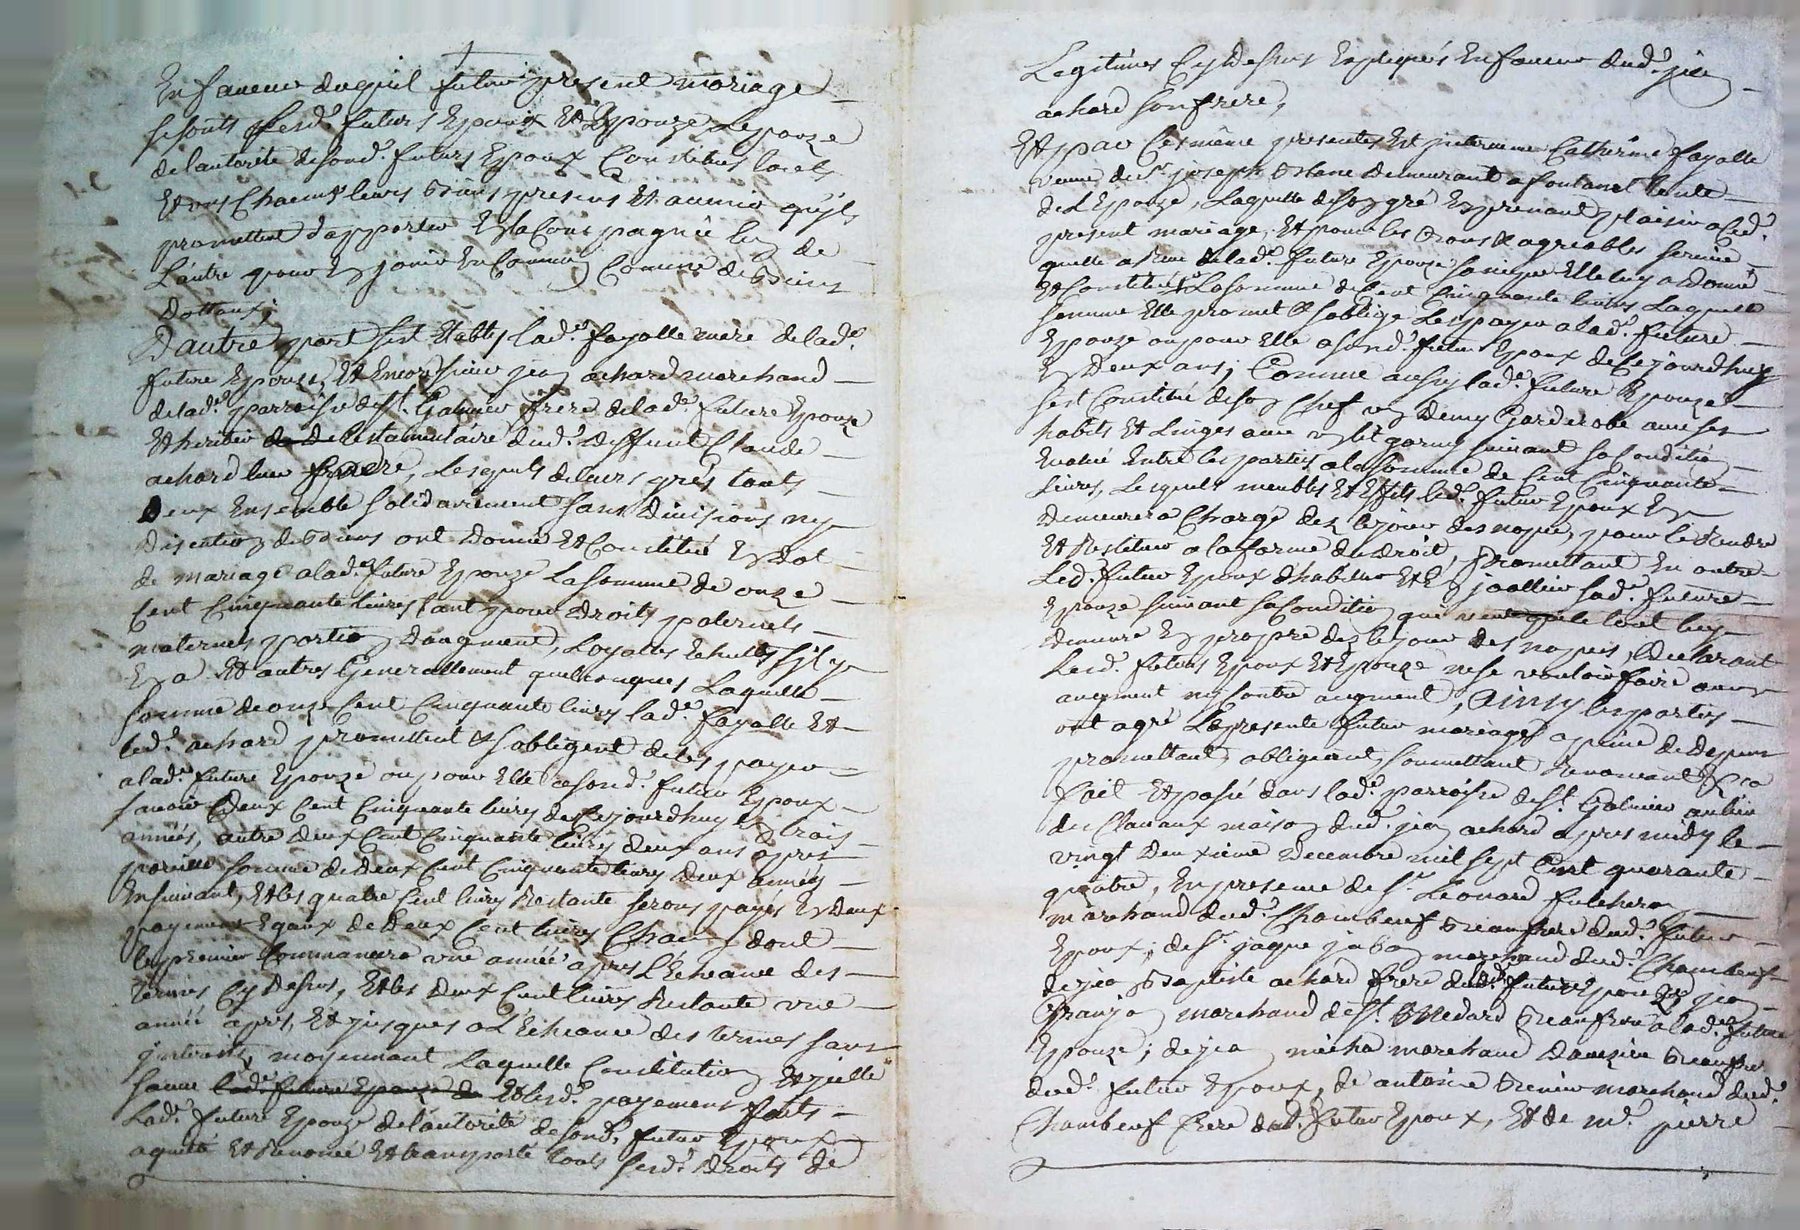 En faveur duquel futur present mariage
se sont lesd. futurs Epoux Et Epouze Lepouze
de lautorité de sond. futur Epoux Constitués
Et ons Chacuns leurs biens presens Et avenir quils
promettent dapporter En la Compagnie lun de
Lautre pour En jouir En Commun Comme de biens
Dottaux;
Dautre part sest Estably lad.e fayolle mere de lad.e
future Epouze, Et Encore sieur jean achard marchand
de lad.e parroisse de St. Galmier frere de lad.e future Epouze
Et heritier testamentaire dud. deffunt Claude
achard leur frere, Lesquels de leurs grés touts
Deux Ensemble solidairement sans Division ny
Discution de biens ont Donné Et Constitué En Dot
de mariage a lad.e future Epouze La somme de onze
Cent Cinquante livres tant pour Droits paternels
maternels portion Daugment, Loyalles Echuttes sil y
En a Et autres Generallement quelconques Laquelle
somme de onze Cent Cinquante livres lad.e fayolle Et
led. achard promettent Et sobligent de les payer
a lad.e future Epouze ou pour Elle a sond. futur Epoux
savoir Deux Cent Cinquante livres de Cejourdhuy En trois
années, autre deux Cent Cinquante livres deux ans apres
pareille somme de Deux Cent Cinquante livres deux années
Ensuivant, Et les quatre Cent livres Restante seront payés En Deux
payemens Egaux de Deux Cent livres Chacun dont
le premier Commancera une année apres L'Echeance des
termes Cy Dessus, Et les Deux Cent livres Restante une
année apres, Et jusques a L'Echeance des termes sans
interests, moyennant Laquelle Constitution Et
Et lesd. payemens faits
Lad.e future Epouze de lautorité de sond. futur Epoux
aquitté Et Renoncé Et transporté touts sesd. Droits de
Legitimes Cy Dessus Expliqués En faveur dud. jean
achard son frere,
Et par Ces même presentes Est intervenue Catherine fayolle
veuve de Sr. joseph demeurant a fontanes tante
de L'Epouze, Laquelle de son gré En prenant plaisir aud.
present mariage, Et pour les bons Et agreables services
quelle a Reçu de lad.e future Epouze sa niepce Elle luy a Donné
Et Constitué La somme de Cent Cinquante livres Laquelle
somme Elle promet Et soblige de payer a lad.e future
Epouze ou pour Elle a sond. futur Epoux de Cejourdhuy
En Deux ans; Comme aussy lad.e future Epouze
sest Constitué de son Chef un Demy Garderobe avec ses
habits Et Linges avec un lit garny suivant sa Condition
Evalué Entre les parties a la somme de Cent Cinquante
livres, Lesquels meubles Et Effets led. futur Epoux En
Demeurera Chargé dez le jour des nopces, pour les Rendre
Et Restituer a la forme du droit, Promettant En outre
Led. futur Epoux d'habiller Et En joallier lad.e future
Epouze suivant sa Condition le tout luy
Demeure En propre dez le jour des nopces, Declarant
Lesd. futurs Epoux Et Epouze ne se vouloir faire aucun
augment ny Contre augment, Ainsy les parties
ont agréé Le present futur mariage a peine de Depens
promettant, obligeant, soumettant Renonceant &a
fait Et passé dans lad.e parroisse de St. Galmier au lieu
des Clavaux maison dud. jean achard apres midy le
vingt Deuxieme Decembre mil sept Cent quarante
quatre, En presence de Sr. Leonard fulcheron
marchand dud. Chambeuf beaufrere dud. futur
Epoux; de Sr. jaque marchand dud. Chambeuf
de jean Baptiste achard frere de lad.e future Epouze, jean
Granjon marchand de St. Medard beaufrere a lad.e future
Epouze; de jean micha marchand Danezieu beaufrere
dud. futur Epoux, de antoine Grenier marchand dud.
Chambeuf frere dud. futur Epoux, Et de Me. pierre